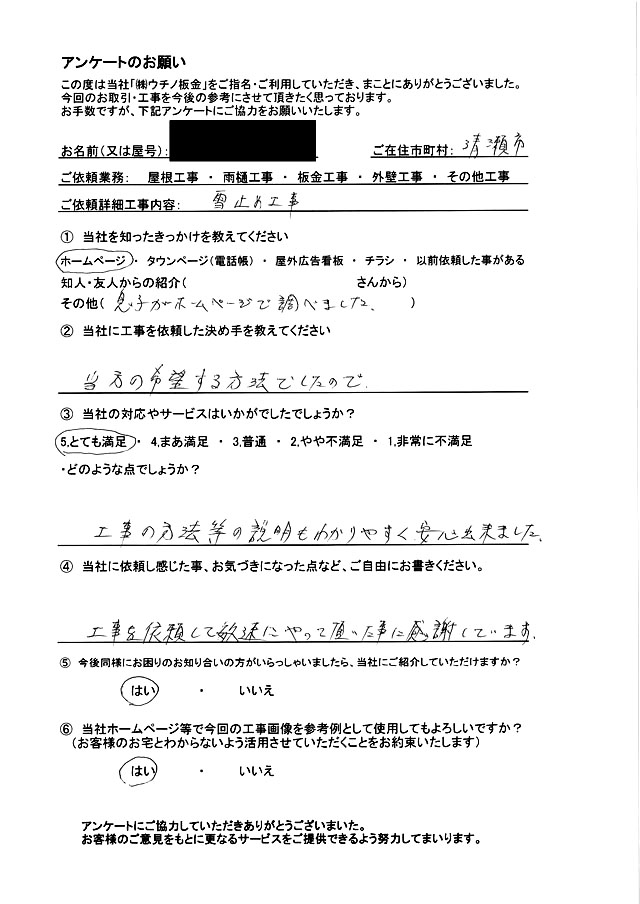 アンケートのお願い
この度は当社「㈱ウチノ板金」をご指名・ご利用していただき、まことにありがとうございました。
今回のお取引・工事を今後の参考にさせて頂きたく思っております。
お手数ですが、下記アンケートにご協力をお願いいたします。
お名前(又は屋号): ご在住市町村: 清瀬市
ご依頼業務: 屋根工事 ・ 雨樋工事 ・ 板金工事 ・ 外壁工事 ・ その他工事
ご依頼詳細工事内容: 雪止め工事
① 当社を知ったきっかけを教えてください
ホームページ・ タウンページ(電話帳) ・ 屋外広告看板 ・ チラシ ・ 以前依頼した事がある
知人・友人からの紹介( さんから)
その他( 息子がホームページで調べました。 )
② 当社に工事を依頼した決め手を教えてください
当方の希望する方法でしたので.
③ 当社の対応やサービスはいかがでしたでしょうか？
5,とても満足 ・ 4,まあ満足 ・ 3,普通 ・ 2,やや不満足 ・ 1,非常に不満足
・どのような点でしょうか？
工事の方法等の説明もわかりやすく、安心出来ました。
④ 当社に依頼し感じた事、お気づきになった点など、ご自由にお書きください。
工事を依頼して敏速にやって頂いた事に感謝しています.
⑤ 今後同様にお困りのお知り合いの方がいらっしゃいましたら、当社にご紹介していただけますか？
はい ・ いいえ
⑥ 当社ホームページ等で今回の工事画像を参考例として使用してもよろしいですか？
(お客様のお宅とわからないよう活用させていただくことをお約束いたします)
はい ・ いいえ
アンケートにご協力していただきありがとうございました。
お客様のご意見をもとに更なるサービスをご提供できるよう努力してまいります。